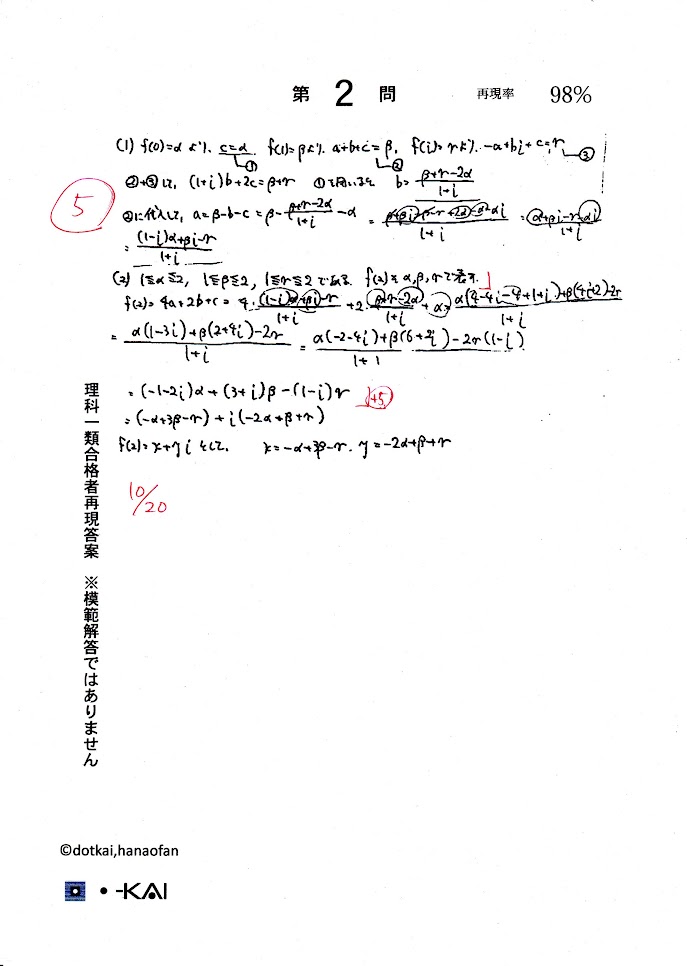 第 2 問 再現率 98%
(1) f(0)=α より、c=α ① f(1)=βより、a+b+c=β, ② f(i)=γより、-a+bi+c=γ ③
②+③して、(1+i)b+2c=β+γ ①を用いると b=\frac{β+γ-2α}{1+i}
②に代入して、a=β-b-c=β-\frac{β+γ-2α}{1+i}-α = \frac{α+βi-γ-αi}{1+i}
= \frac{(1-i)α+βi-γ}{1+i}
5
(2) 1≦α≦2, 1≦β≦2, 1≦γ≦2 である f(2)をα,β,γで表す.
f(2)=4a+2b+c=4・\frac{(1-i)α+βi-γ}{1+i}+2・\frac{β+γ-2α}{1+i}+α=\frac{α(4-4i-4+1+i)+β(4i+2)-2γ}{1+i}
= \frac{α(1-3i)+β(2+4i)-2γ}{1+i} = \frac{α(-2-4i)+β(6+2i)-2γ(1-i)}{1+1}
= (-1-2i)α+(3+i)β-(1-i)γ +5
= (-α+3β-γ)+i(-2α+β+γ)
f(2)=x+yi として、 x=-α+3β-γ, y=-2α+β+γ
10/20
理科一類合格者再現答案 ※模範解答ではありません
©dotkai,hanaofan
・-KAI